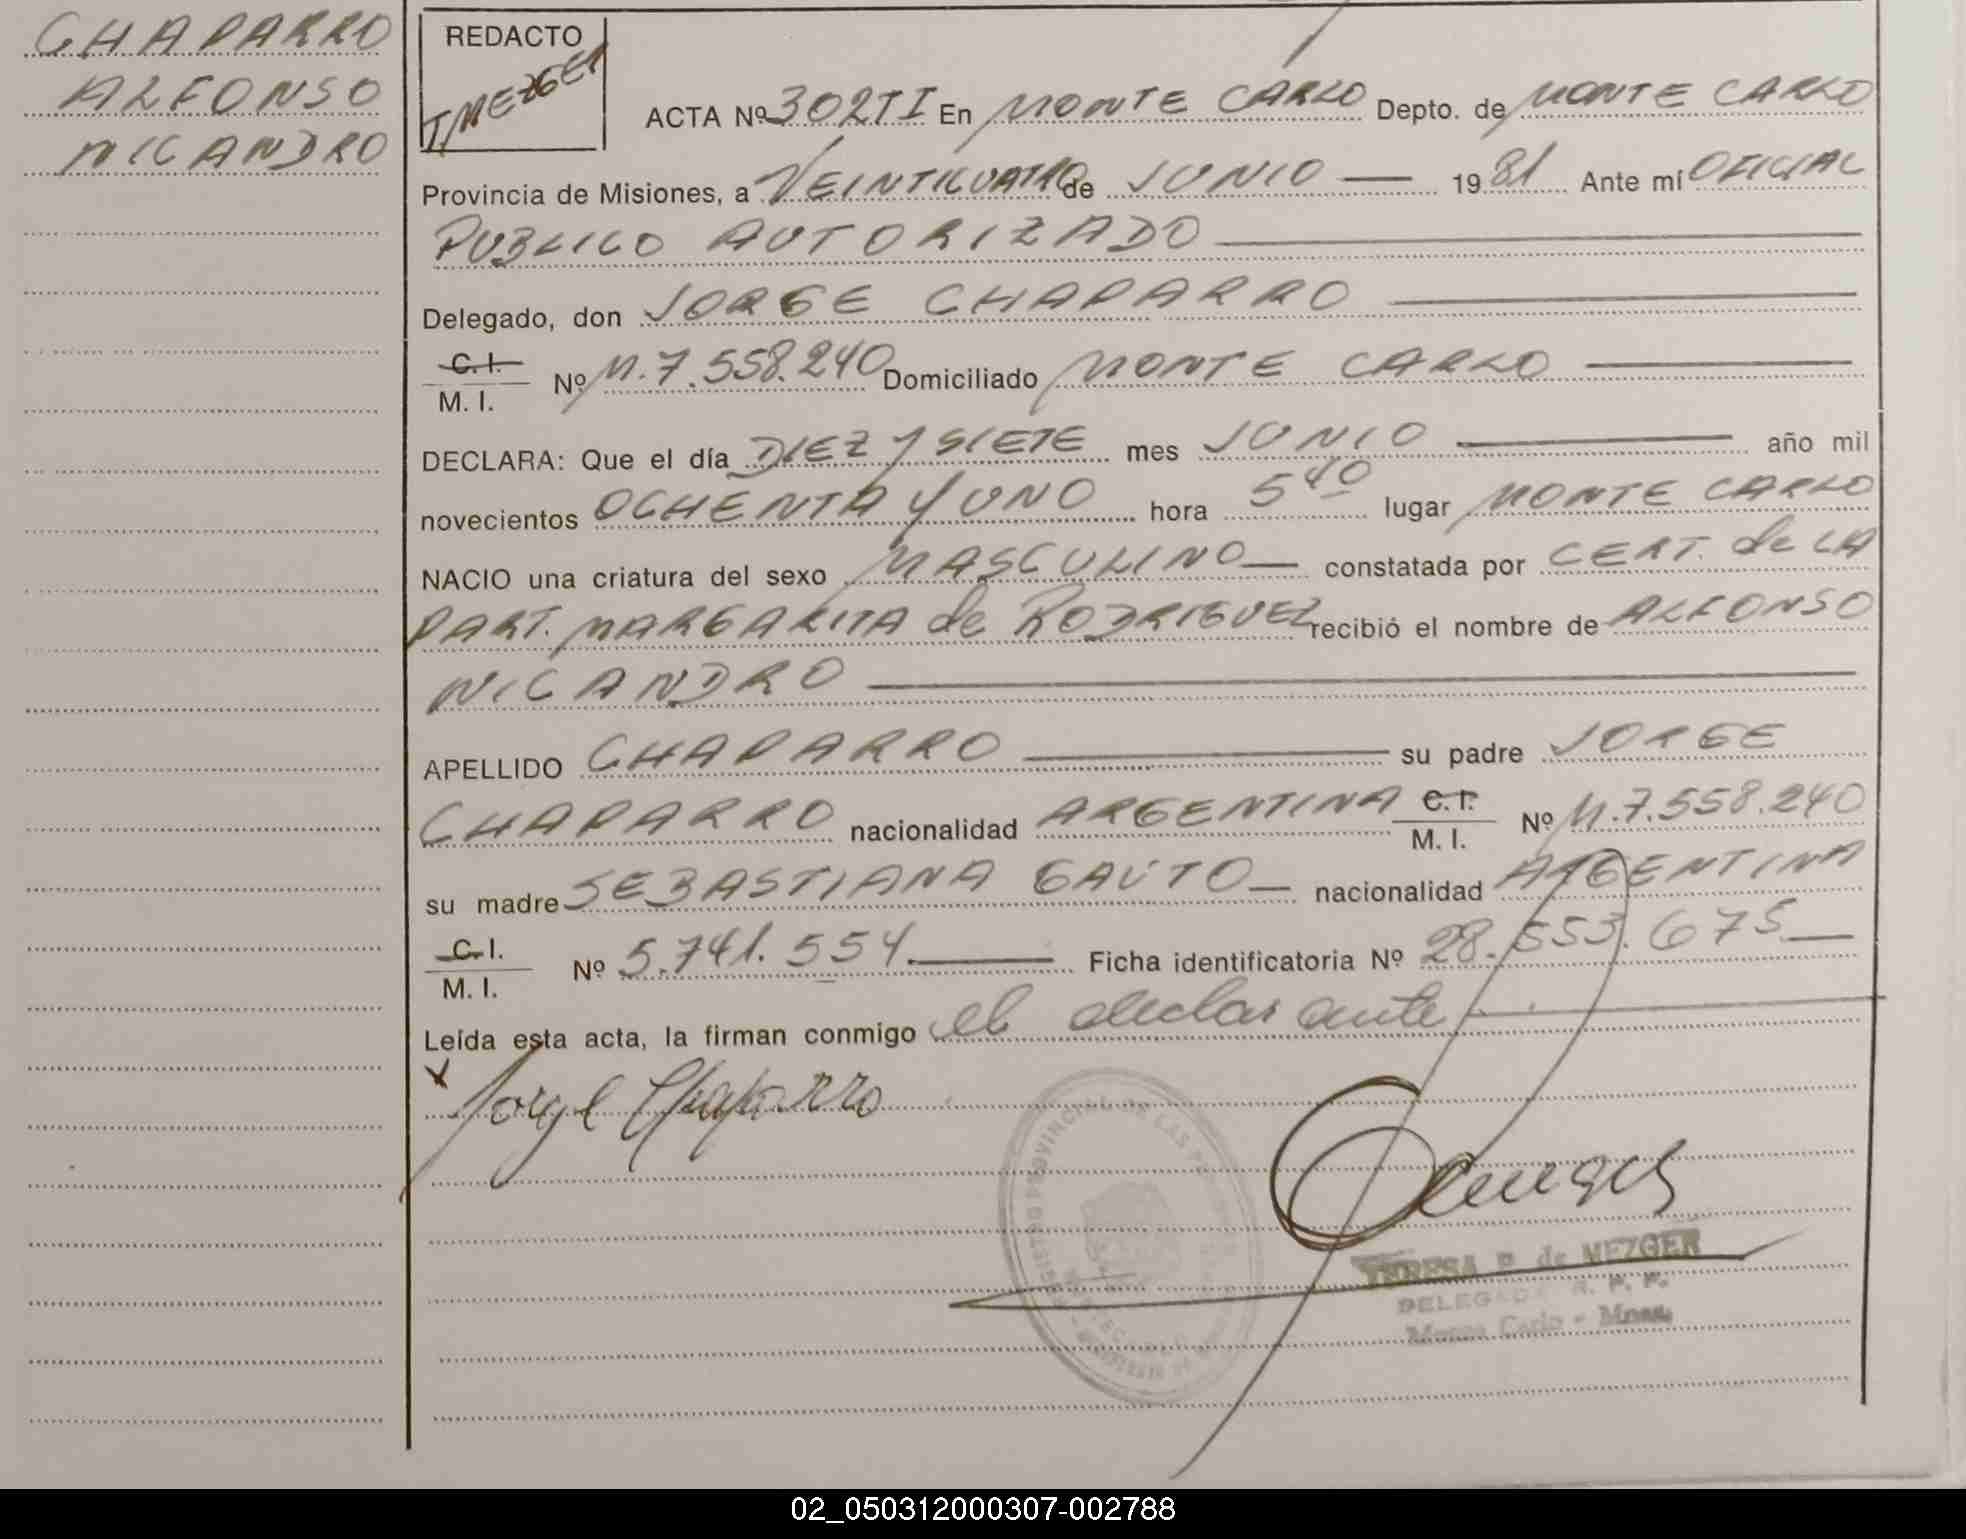 CHAPARRO
ALFONSO
NICANDRO
REDACTO
TMEZGER
ACTA Nº 302TI En MONTE CARLO Depto. de MONTE CARLO
Provincia de Misiones, a VEINTICUATRO de JUNIO — 1981 Ante mí OFICIAL
PUBLICO AUTORIZADO
Delegado, don JORGE CHAPARRO
C. I.
M. I. Nº M.7.558.240 Domiciliado MONTE CARLO
DECLARA: Que el día DIEZ Y SIETE mes JUNIO año mil
novecientos OCHENTA Y UNO hora 5 40 lugar MONTE CARLO
NACIO una criatura del sexo MASCULINO — constatada por CERT. de LA
PART. MARGARITA de RODRIGUEZ recibió el nombre de ALFONSO
NICANDRO
APELLIDO CHAPARRO su padre JORGE
CHAPARRO nacionalidad ARGENTINA C. I. M. I. Nº M.7.558.240
su madre SEBASTIANA GAUTO — nacionalidad ARGENTINA
C. I.
M. I. Nº 5.741.554. Ficha identificatoria Nº 28.553.675
Leída esta acta, la firman conmigo el declarante
x Jorge Chaparro
TERESA P. de MEZGER
DELEGADA R. P. P.
Monte Carlo - Mnes.
02_050312000307-002788